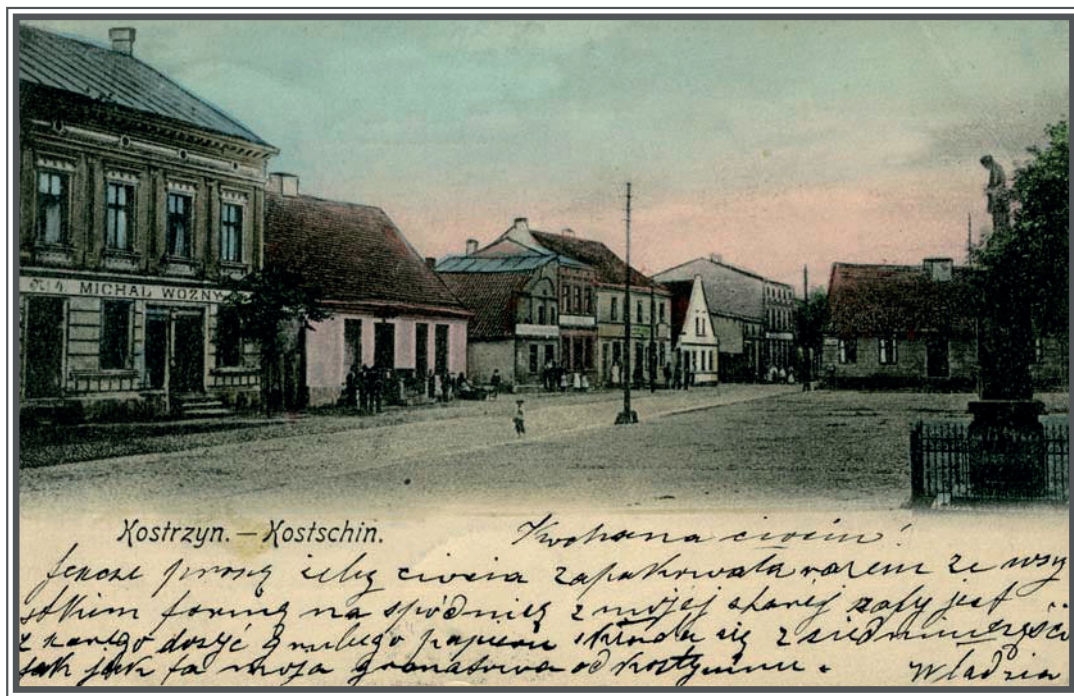 MICHAŁ WOŹNY
Kostrzyn. – Kostschin.
Kochana ciociu!
Jeszcze proszę żeby ciocia zapakowała razem ze wszy
stkiem formę na spódnicę z mojej starej szafy jest
z szarego dosyć grubego papieru składa się z siedmiu części
tak jak ta moja granatowa od kostyumu.
Władzia